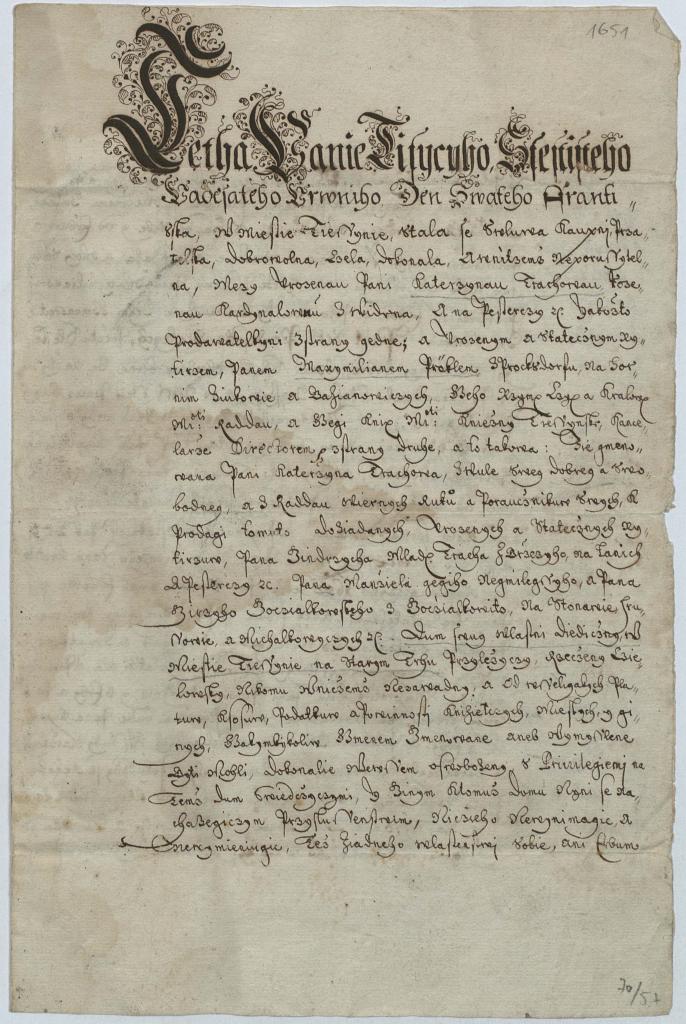 1651
Letha Panie Tisycyho Ssestisteho
Padesateho Prwniho Den Swateho Franti=
sska, W Miestie Tiessynie, Stala se Smluwa Kaupnj, Prza=
telska, Dobrowolna, Czela, Dokonala, A w niczems Neporussytel=
na, Mezy Urozenau Pani Katerzynau Trachowau Roze=
nau Kardynalowau Z Widna, A na Pesterczy &c. Yakožto
Prodawatelkyni Zstrany gedne; a Urozenym a Statecznym Ry=
tirzem, Panem Maxymilianem Pröklem Z Procksdorfu, Na Hor=
nim Žukowie a Bažianowiczych, Geho
Msti: Raddau, a Gegi Msti Kniežny Tiessynske, Kance=
larže Directorem, zstrany druhe, a to takowa: Že gmeno=
wana Pani Katerzyna Trachowa, Z Wule Swey dobrey a Swo=
bodney, a Z Raddau Wiernych Rukuw a Porucznikuw Swych, K
Prodagi tomuto Dožiadanych, Urozenych a Statecznych Ry=
tirzuw, Pana Gindrzycha Mladss Tracha Z Brzezyho, na Lanich
A Pesterczy &c. Pana Manžiela gegiho Neymilegssyho, a Pana
Girzyho Boczialkowskeho Z Na Stonawie,
a Michalkowyczych &c. Dum swuy wlastni Diediczny, W
Miestie Tiessynie na Starym Trhu Przyležyczy, Rzeczeny
Nikomu Wniczems Nezawadny, a Od wsseligakych Pla=
tuw, Podatkuw a Powinnosti Knižietczych, Miestskych, y gi=
nych, Yakymkoliw Gmenem Gmenowane aneb Wymysslene
Byti Mohli, Dokonalie Wewssem oswobozeny, S Privilegiemj na
Tems Dum Swiedczyczymi, Y Ginym Ktomus Domu Nyni se na=
chazegiczym Przyslussenstwim, Niczeho Newynimagic, A
Newymieniugic, Tež Žiadneho wlastenstwj Sobie, ani Erbum
70/57